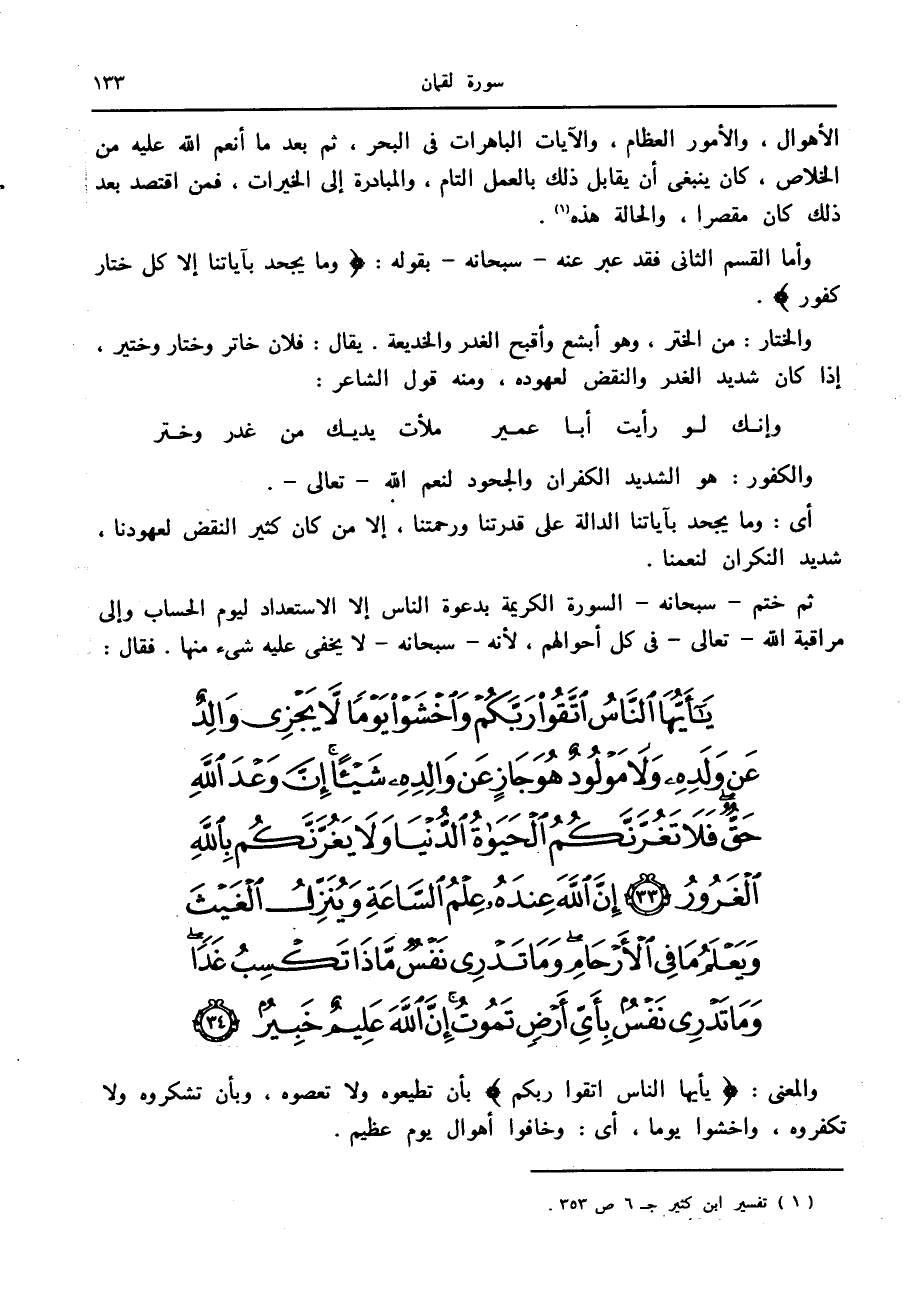 سورة لقمان ١٣٣
الأهوال ، والأمور العظام ، والآيات الباهرات فى البحر ، ثم بعد ما أنعم الله عليه من
الخلاص ، كان ينبغى أن يقابل ذلك بالعمل التام ، والمبادرة إلى الخيرات ، فمن اقتصد بعد
ذلك كان مقصرا ، والحالة هذه(١) .
وأما القسم الثانى فقد عبر عنه – سبحانه – بقوله : ﴿ وما يجحد بآياتنا إلا كل ختار
كفور ﴾ .
والختار : من الختر ، وهو أبشع وأقبح الغدر والخديعة . يقال : فلان خاتر وختار وختير ،
إذا كان شديد الغدر والنقض لعهوده ، ومنه قول الشاعر :
وإنـك لـو رأيت أبـا عمـير ملأت يديـك من غدر وختـر
والكفور : هو الشديد الكفران والجحود لنعم الله – تعالى – .
أى : وما يجحد بآياتنا الدالة على قدرتنا ورحمتنا ، إلا من كان كثير النقض لعهودنا ،
شديد النكران لنعمنا .
ثم ختم – سبحانه – السورة الكريمة بدعوة الناس إلا الاستعداد ليوم الحساب وإلى
مراقبة الله – تعالى – فى كل أحوالهم ، لأنه – سبحانه – لا يخفى عليه شىء منها . فقال :
يَٰٓأَيُّهَا ٱلنَّاسُ ٱتَّقُوا۟ رَبَّكُمْ وَٱخْشَوْا۟ يَوْمًا لَّا يَجْزِى وَالِدٌ
عَن وَلَدِهِۦ وَلَا مَوْلُودٌ هُوَ جَازٍ عَن وَالِدِهِۦ شَيْـًٔا ۚ إِنَّ وَعْدَ ٱللَّهِ
حَقٌّ ۖ فَلَا تَغُرَّنَّكُمُ ٱلْحَيَوٰةُ ٱلدُّنْيَا وَلَا يَغُرَّنَّكُم بِٱللَّهِ
ٱلْغَرُورُ ﴿٣٣﴾ إِنَّ ٱللَّهَ عِندَهُۥ عِلْمُ ٱلسَّاعَةِ وَيُنَزِّلُ ٱلْغَيْثَ
وَيَعْلَمُ مَا فِى ٱلْأَرْحَامِ ۖ وَمَا تَدْرِى نَفْسٌ مَّاذَا تَكْسِبُ غَدًا ۖ
وَمَا تَدْرِى نَفْسٌۢ بِأَىِّ أَرْضٍ تَمُوتُ ۚ إِنَّ ٱللَّهَ عَلِيمٌ خَبِيرٌۢ ﴿٣٤﴾
والمعنى : ﴿ يأيها الناس اتقوا ربكم ﴾ بأن تطيعوه ولا تعصوه ، وبأن تشكروه ولا
تكفروه ، واخشوا يوما ، أى : وخافوا أهوال يوم عظيم .
( ١ ) تفسير ابن كثير جـ ٦ ص ٣٥٣ .